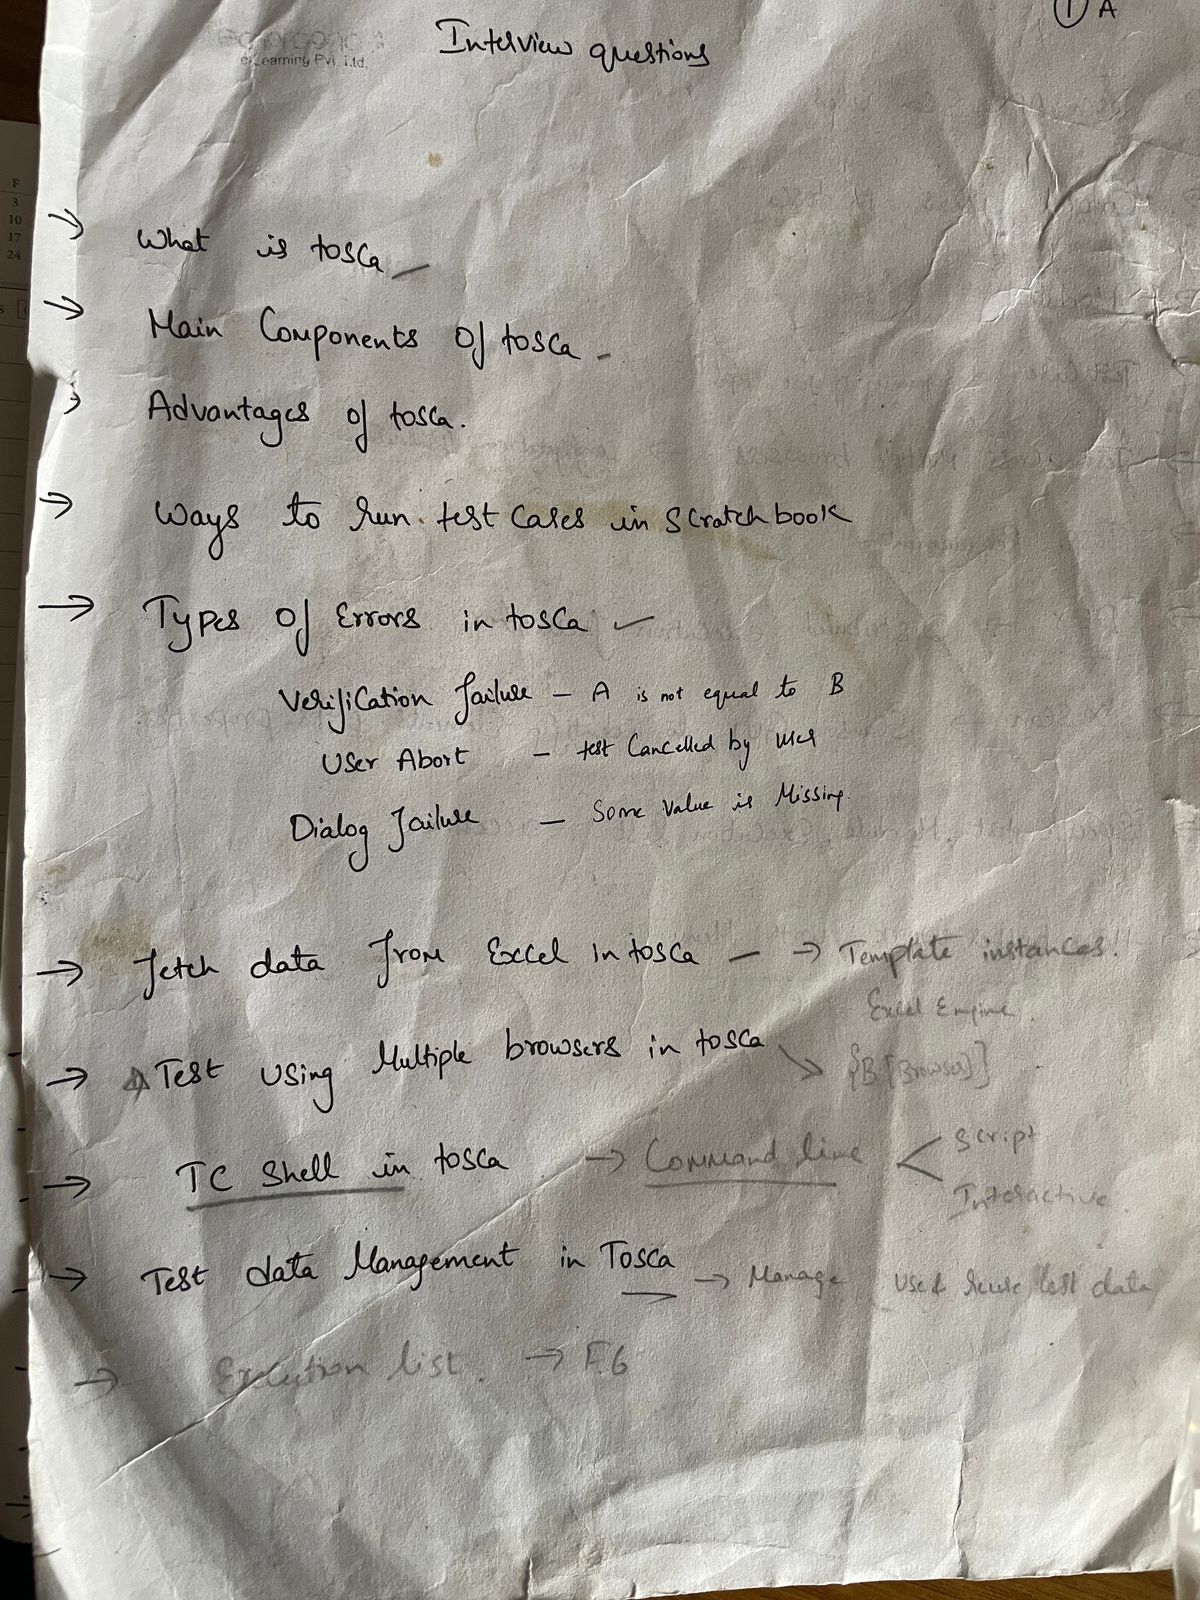 1 A
Interview questions
e-Learning Pvt. Ltd.
F
3
10
17
24
→ What is tosca –
→ Main Components of tosca -
→ Advantages of tosca.
→ Ways to run test cases in scratchbook
→ Types of Errors in tosca ✓
Verification failure – A is not equal to B
User Abort – test Cancelled by user
Dialog failure – Some value is Missing.
→ fetch data from Excel in tosca – → Template instances.
Excel Engine.
→ Test Using Multiple browsers in tosca ↘ {B[Browser]}
→ TC Shell in tosca → Command line < Script
Interactive
→ Test data Management in Tosca → Manage use & reuse test data
→ Execution list. → F6